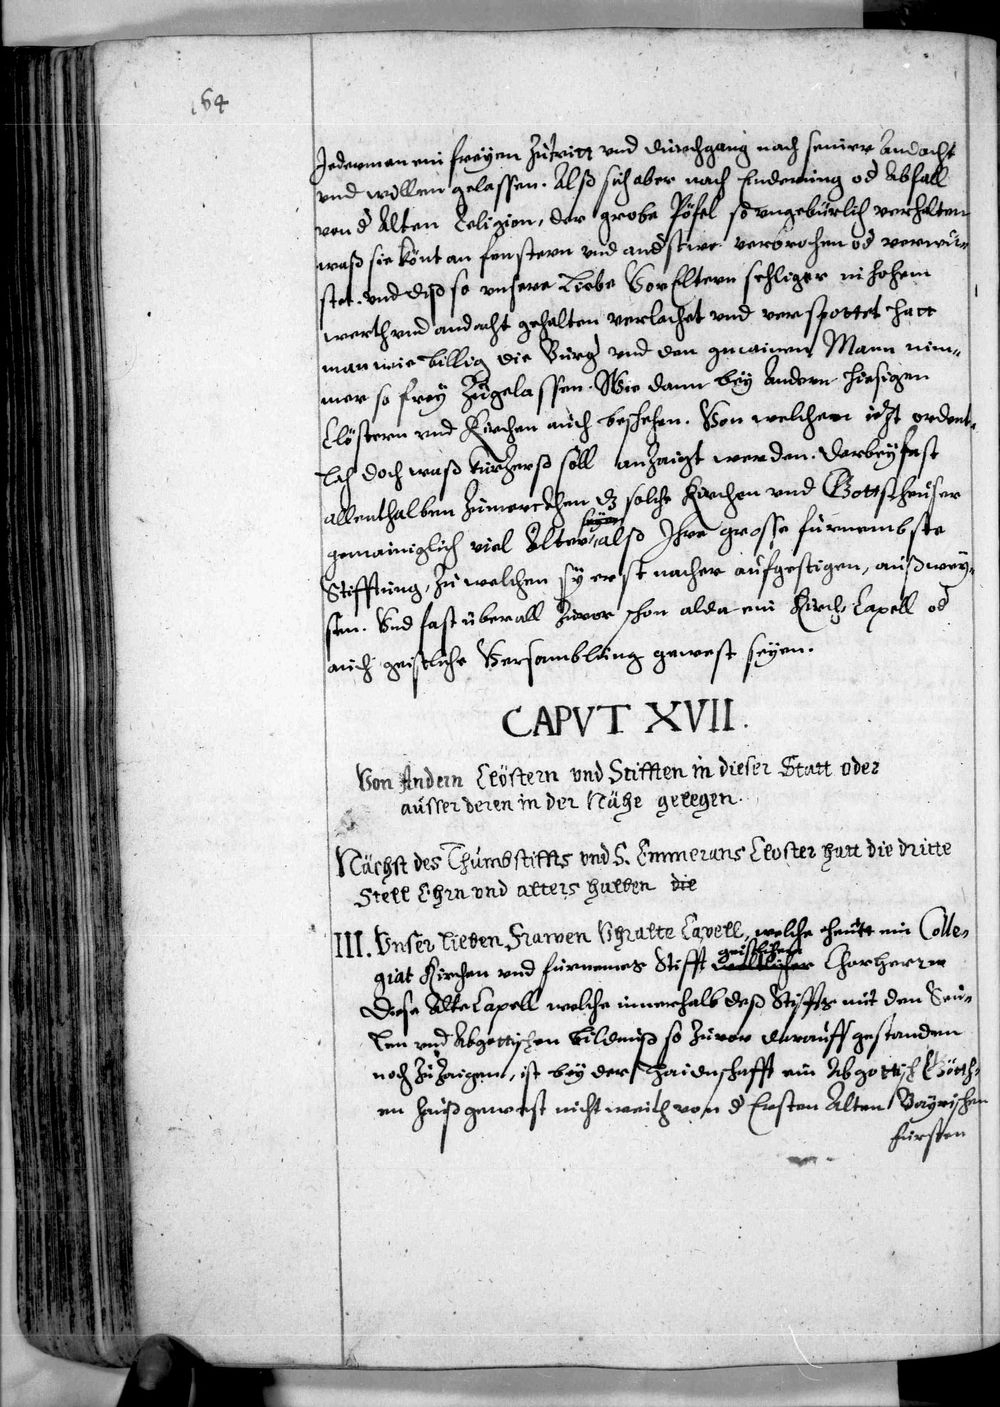 164
Jederman ein freyen Zutritt vnd durchgang nach seiner Andacht
vnd willen gelassen. Alß sich aber nach Enderung od Abfall
von d Alten Religion, der grobe Pöfel so vngebürlich verhalten
waß sie könt an fenstern vnd andstwo verbrochen od verwü-
stet. vnd diß so vnsere Liebe VorEltern sehliger in hohem
werth vnd andacht gehalten verlachet vnd verspottet hatt
man wie billig die Burg vnd den gmainen Mann nim-
mer so frey Zugelassen. Wie dann bey Andern hiesigen
Clöstern vnd Kirchen auch beschehen. Von welchem iezt ordent-
lich doch waß kürzers soll anzaigt werden. darbey fast
allenthalben Zumerckhen dz solche Kirchen vnd Gottsheuser
gemainiglich viel Älter seyen alß Ihre grosse fürnembste
Stifftung, Zu welchen sy erst nacher aufgestigen, außwey-
sen. Vnd fast überall Zuvor schon alda ein Kirch Capell od
auch geistliche Versamblung gewest seyen.
CAPVT XVII.
Von Andern Clöstern vnd Stifften in dieser Statt oder
ausser deren in der Nähe gelegen.
Nächst des Thumbstiffts vnd S. Emmerans Closter hatt die dritte
Stell Ehrn vnd alters halben die
III. Vnser lieben Frawen Vhralte Capell, welche heutt ein Colle-
giat Kirchen vnd fürnemes Stifft geistlicher weltlicher Chorherrn
Diese Alte Capell welche innerhalb deß Stiffts mit den Seu-
len vnd Abgottischen bildniß so Zuvor darauff gestanden
noch Zu Zaigen, ist bey der Haidenschafft ein Abgottisch Götth-
en hauß gewest nicht weith von d Ersten Alten Bayrischen
fürsten